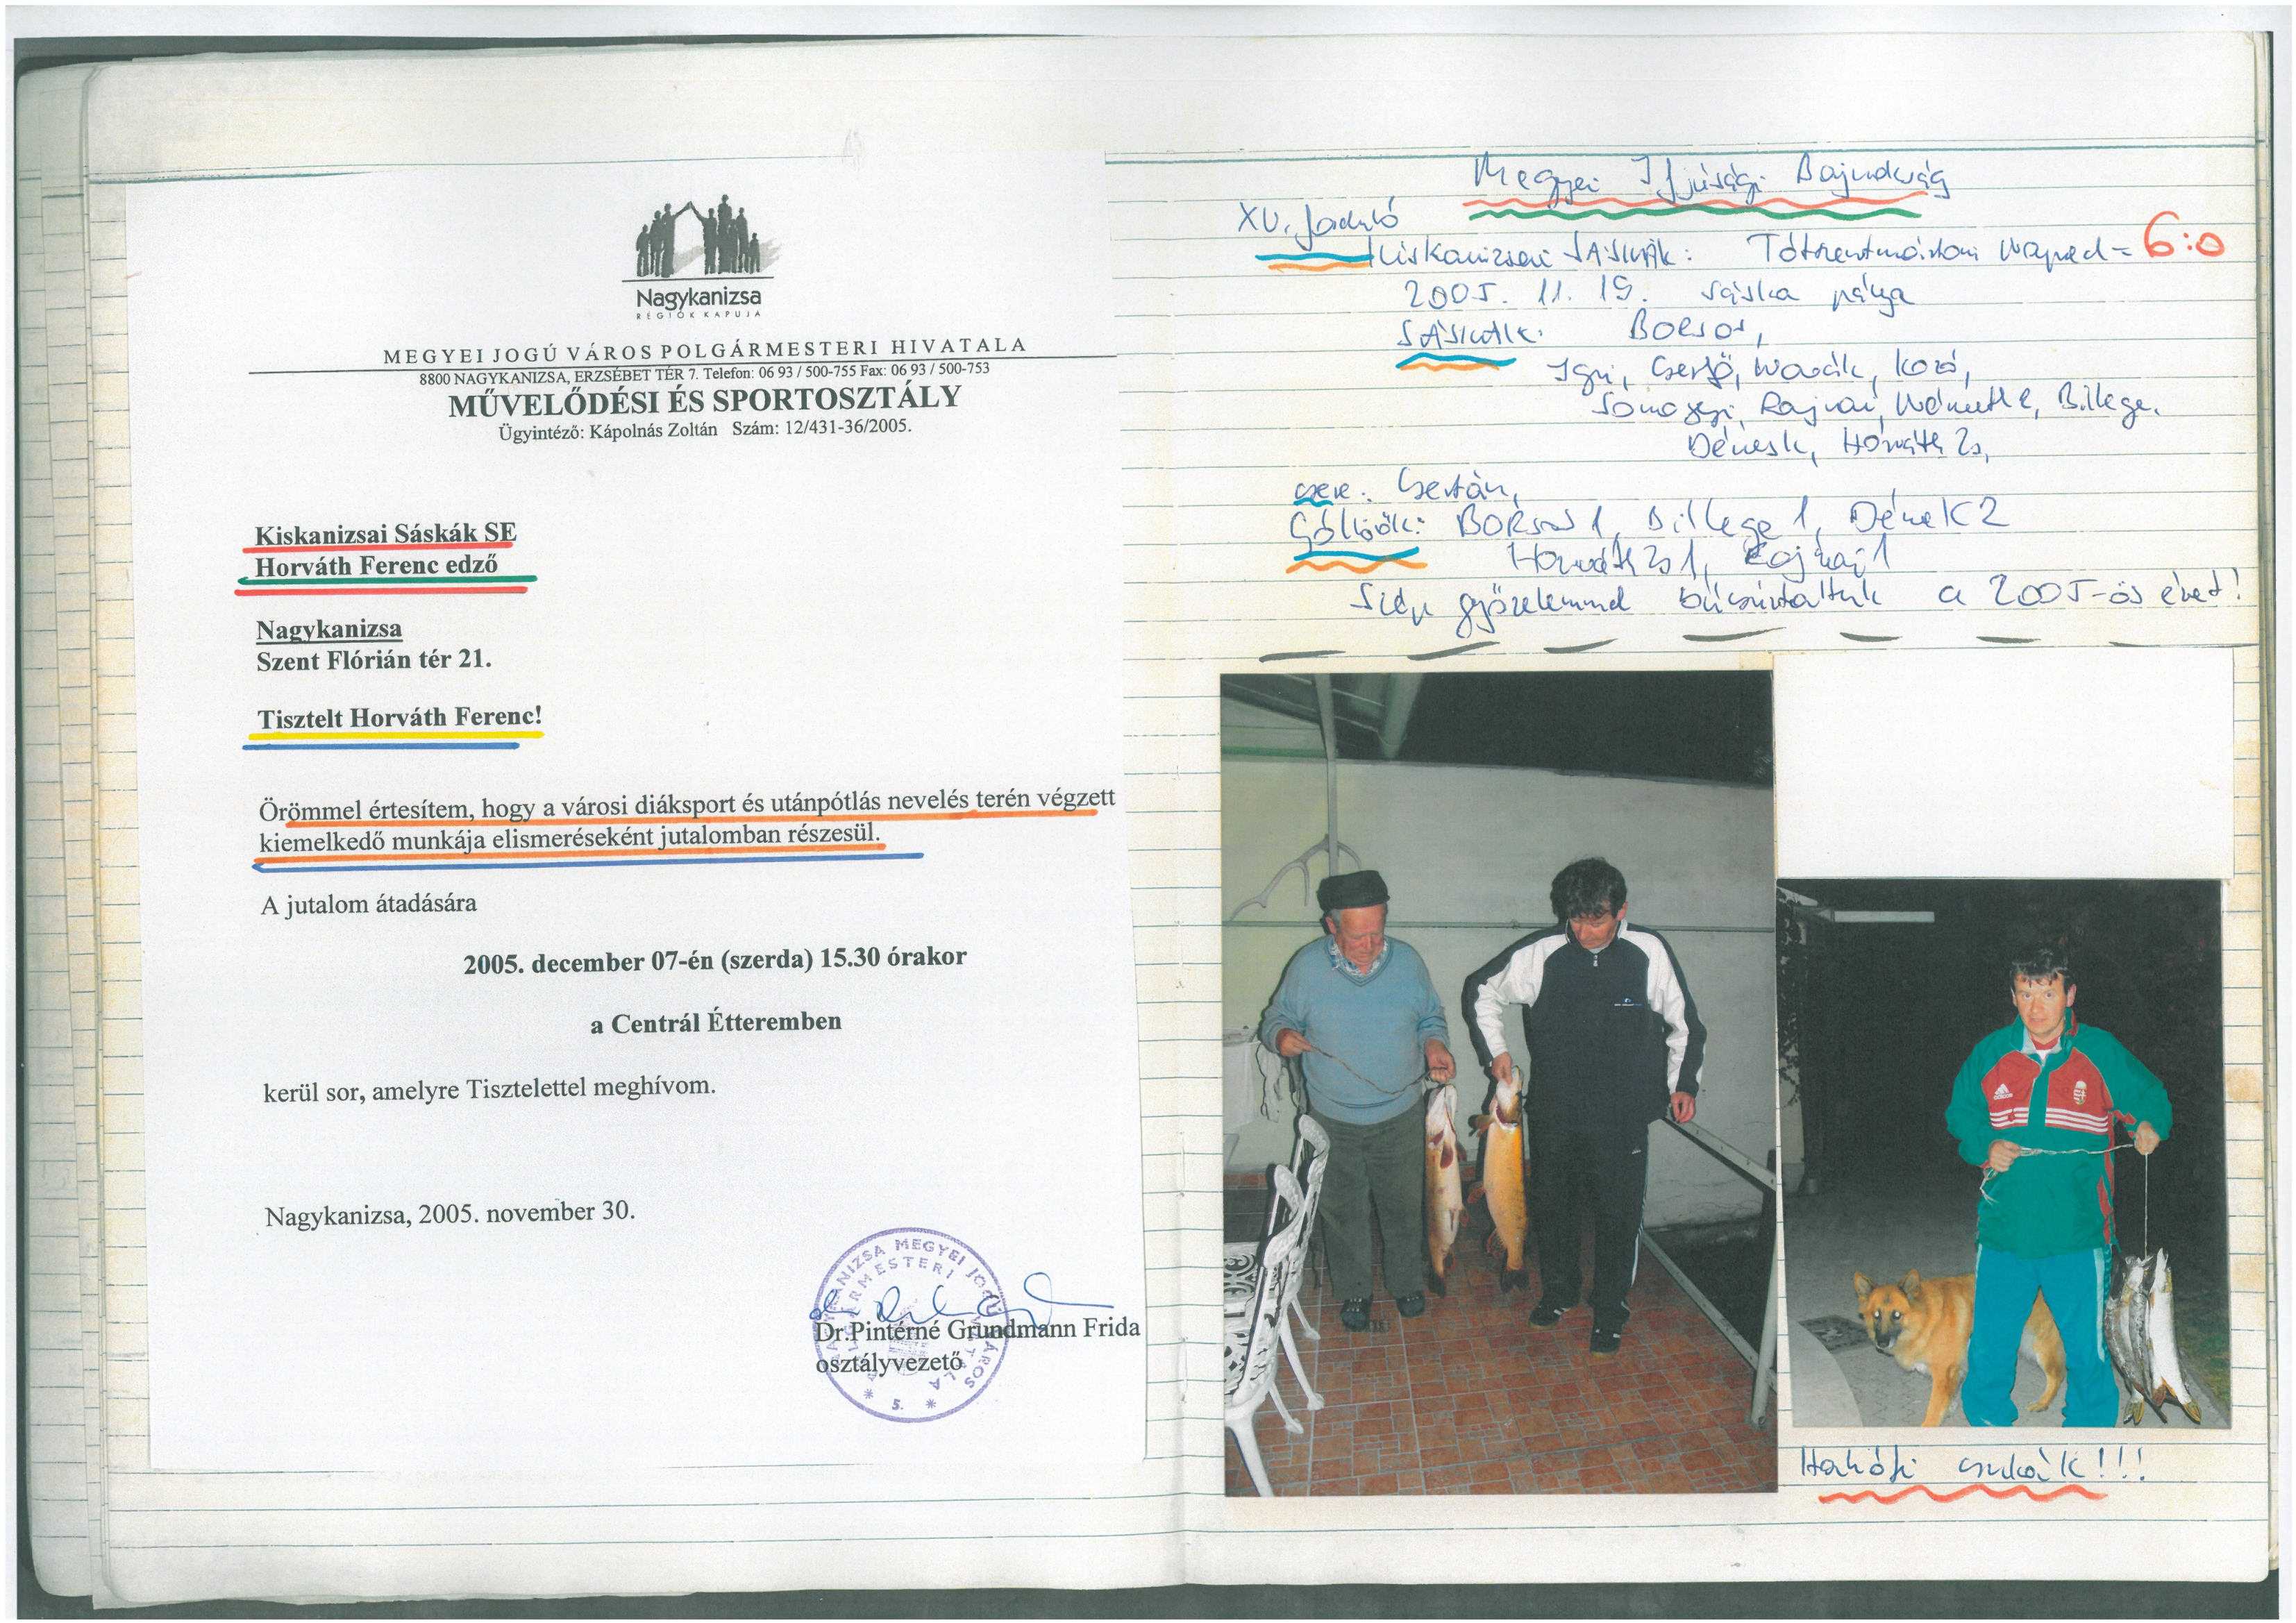 Nagykanizsa
RÉGIÓK KAPUJA
MEGYEI JOGÚ VÁROS POLGÁRMESTERI HIVATALA
8800 NAGYKANIZSA, ERZSÉBET TÉR 7. Telefon: 06 93 / 500-755 Fax: 06 93 / 500-753
MŰVELŐDÉSI ÉS SPORTOSZTÁLY
Ügyintéző: Kápolnás Zoltán Szám: 12/431-36/2005.
Kiskanizsai Sáskák SE
Horváth Ferenc edző
Nagykanizsa
Szent Flórián tér 21.
Tisztelt Horváth Ferenc!
Örömmel értesítem, hogy a városi diáksport és utánpótlás nevelés terén végzett
kiemelkedő munkája elismeréseként jutalomban részesül.
A jutalom átadására
2005. december 07-én (szerda) 15.30 órakor
a Centrál Étteremben
kerül sor, amelyre Tisztelettel meghívom.
Nagykanizsa, 2005. november 30.
NAGYKANIZSA MEGYEI JOGÚ VÁROS
POLGÁRMESTERI HIVATALA
* 5. *
Dr.Pintérné Grundmann Frida
osztályvezető
Megyei Ifjúsági Bajnokság
XV. forduló
Kiskanizsai SÁSKÁK: Tótszentmártoni = 6:0
2005. 11. 19. sáska pálya
SÁSKÁK: BORSOS,
Igri, Cserfő, Novák, Kozó,
Somogyi, Rajnai, Németh, Billege,
Dénes K, Horváth Zs,
csere: Csertán,
Góllövők: BORSOS 1, Billege 1, Dénes K 2
Horváth Zs 1, Rajnai 1
Szép győzelemmel búcsúztattuk a 2005-ös évet!
adidas
Hahóti csukák!!!